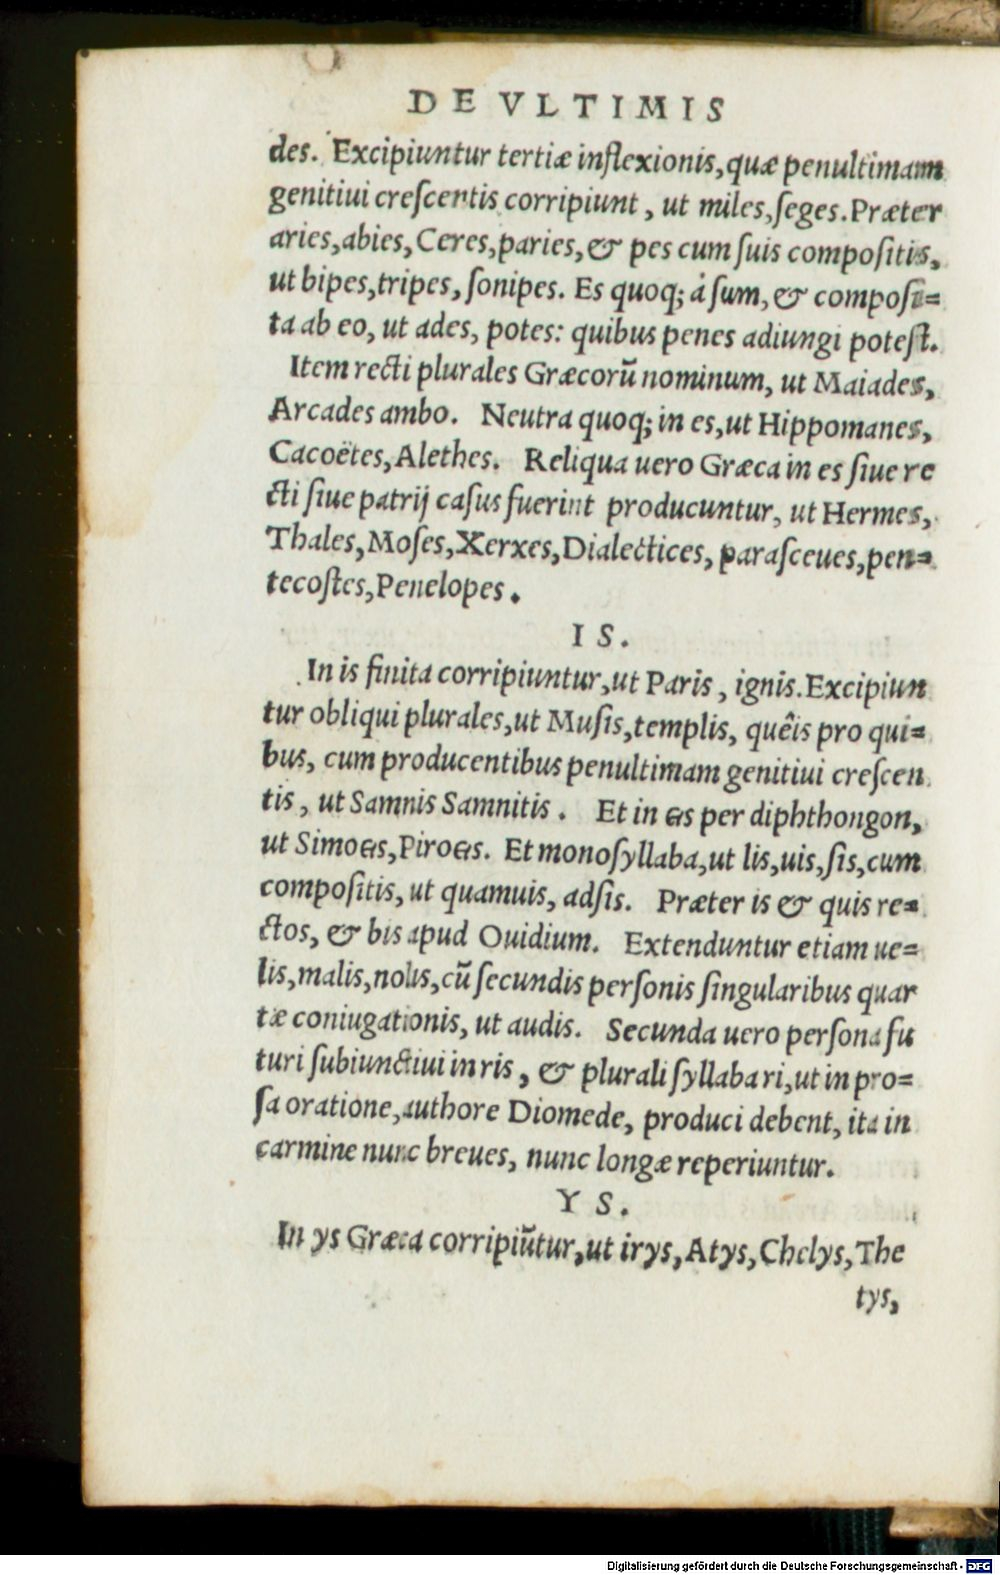 DE VLTIMIS
des. Excipiuntur tertiæ inflexionis, quæ penultimam
genitiui creſcentis corripiunt, ut miles, ſeges. Præter
aries, abies, Ceres, paries, & pes cum ſuis compoſitis,
ut bipes, tripes, ſonipes. Es quoq; à ſum, & compoſi=
ta ab eo, ut ades, potes: quibus penes adiungi poteſt.
Item recti plurales Græcorũ nominum, ut Maiades,
Arcades ambo. Neutra quoq; in es, ut Hippomanes,
Cacoëtes, Alethes. Reliqua uero Græca in es ſiue re
cti ſiue patrij caſus fuerint producuntur, ut Hermes,
Thales, Moſes, Xerxes, Dialectices, paraſceues, pen=
tecoſtes, Penelopes.
IS.
In is finita corripiuntur, ut Paris, ignis. Excipiun
tur obliqui plurales, ut Muſis, templis, quêis pro qui=
bus, cum producentibus penultimam genitiui creſcen
tis, ut Samnis Samnitis. Et in eis per diphthongon,
ut Simoeis, Piroeis. Et monoſyllaba, ut lis, uis, ſis, cum
compoſitis, ut quamuis, adſis. Præter is & quis re=
ctos, & bis apud Ouidium. Extenduntur etiam ue=
lis, malis, nolis, cũ ſecundis perſonis ſingularibus quar
tæ coniugationis, ut audis. Secunda uero perſona fu
turi ſubiunctiui in ris, & plurali ſyllaba ri, ut in pro=
ſa oratione, authore Diomede, produci debent, ita in
carmine nunc breues, nunc longæ reperiuntur.
YS.
In ys Græca corripiũtur, ut irys, Atys, Chelys, The
tys,
Digitalisierung gefördert durch die Deutsche Forschungsgemeinschaft - DFG